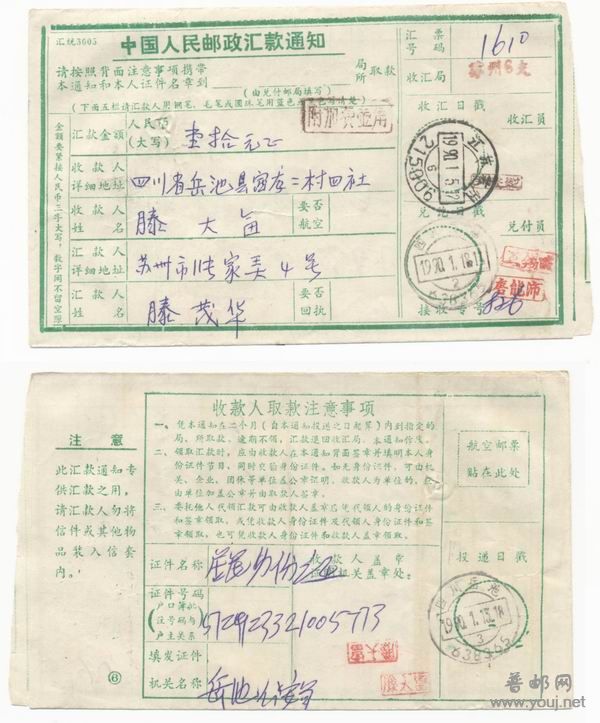 汇统3605
中国人民邮政汇款通知
请按照背面注意事项携带
本通知和本人证件名章到
局所取款
(由兑付邮局填写)
(下面五栏请汇款人用钢笔、毛笔或圆珠笔用蓝色
汇票号码
1610
收汇局
收汇日戳
收汇员
金额要紧接人民币三字大写,数字间不留空隙
汇款金额
人民币
(大写)
壹拾元正
附加费壹角
收款人
详细地址
四川省岳池县富存二村四社
收款人
姓名
滕大
要否
航空
汇款人
详细地址
苏州市张家弄4号
汇款人
姓名
滕茂华
要否
回执
兑付员
接收专号
826
江苏
1990.1.5.12
6
1990.1.18.1
2
唐能沛
收款人取款注意事项
一、凭本通知在二个月(自本通知投送之日起算)内到指定的
局、所取款,逾期不领,汇款退回收汇局,本通知作废。
二、领取汇款时,应由收款人在本通知背面签章并填明本人身
份证件节目,同时交验身份证件。如无身份证件,可由机
关、企业、团体等单位盖公章证明。收款人为单位的,应
由单位加盖公章并由取款人签章。
三、委托他人代领汇款可由收款人盖章后凭代领人的身份证件
和签章领取,或凭收款人身份证件及代领人身份证件和签
章领取,也可凭收款人身份证件和收款人盖章领取。
注意
此汇款通知专
供汇款之用,
请汇款人勿将
信件或其他物
品装入信套
内。
6
航空邮票
贴在此处
证件名称
身份证
收款人盖章
机关盖章处:
投递日戳
证件号码
(户口簿地址
注号码与
户主关系)
512923321005773
填发证件
机关名称
岳池公安局
滕大富
四川岳池
1990.1.15.18
3
638365
普邮网
www.youj.net